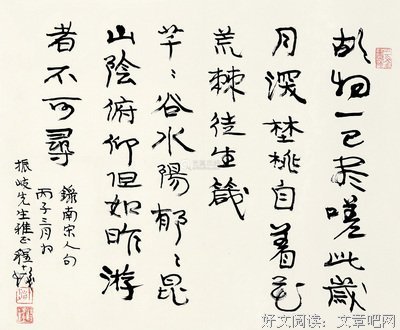 故物一已尽嗟此歲
月深埜桃自着花
荒棘徒生箴
芊〻谷水陽郁〻昆
山陰俯仰但如昨游
者不可尋
錄南宋人句
丙子三月为
振岐先生雅正程十髮
好文阅读：文章吧网